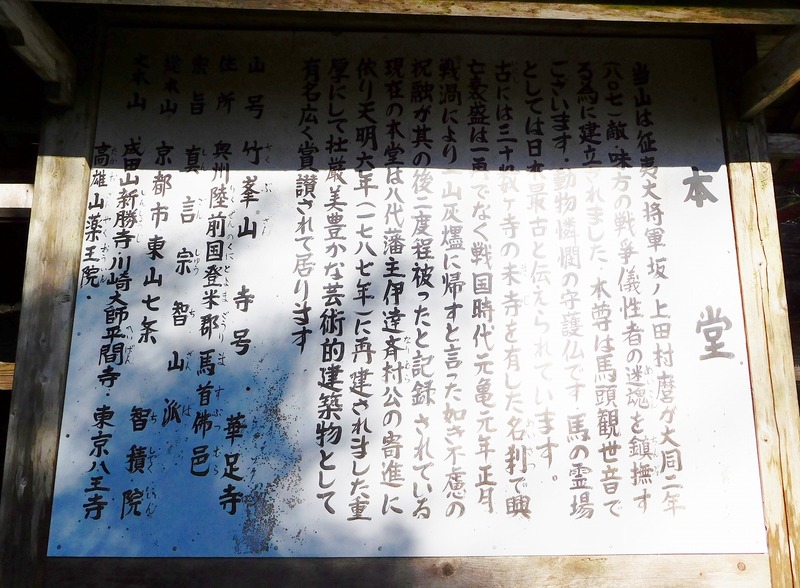 本堂
当山は征夷大将軍坂ノ上田村麿が大同二年
(八〇七)敵、味方の戦争儀性者の迷魂を鎮撫す
る為に建立されました.本尊は馬頭観世音で
ございます.動物憐憫の守護仏です馬の霊場
としては日本最古と伝えられています。
古には三十数ヶ寺の末寺を有した名刹で興
亡衰盛は一再でなく戦国時代元亀元年正月
戦渦により一山灰燼に帰すと言った如き不慮の
祝融が其の後二度程被ったと記録されている
現在の本堂は八代藩主伊達斉村公の寄進に
依り天明六年(一七八七年)に再建されました重
厚にして壮厳美豊かな芸術的建築物として
有名広く賞讃されて居ります
山号 竹峯山 寺号. 華足寺
住所 奥州陸前国登米郡馬首佛邑
宗旨 真言宗智山派
総本山 京都市東山七条 智積院
大本山 成田山新勝寺.川崎大師平間寺.東京八王寺
高雄山薬王院.